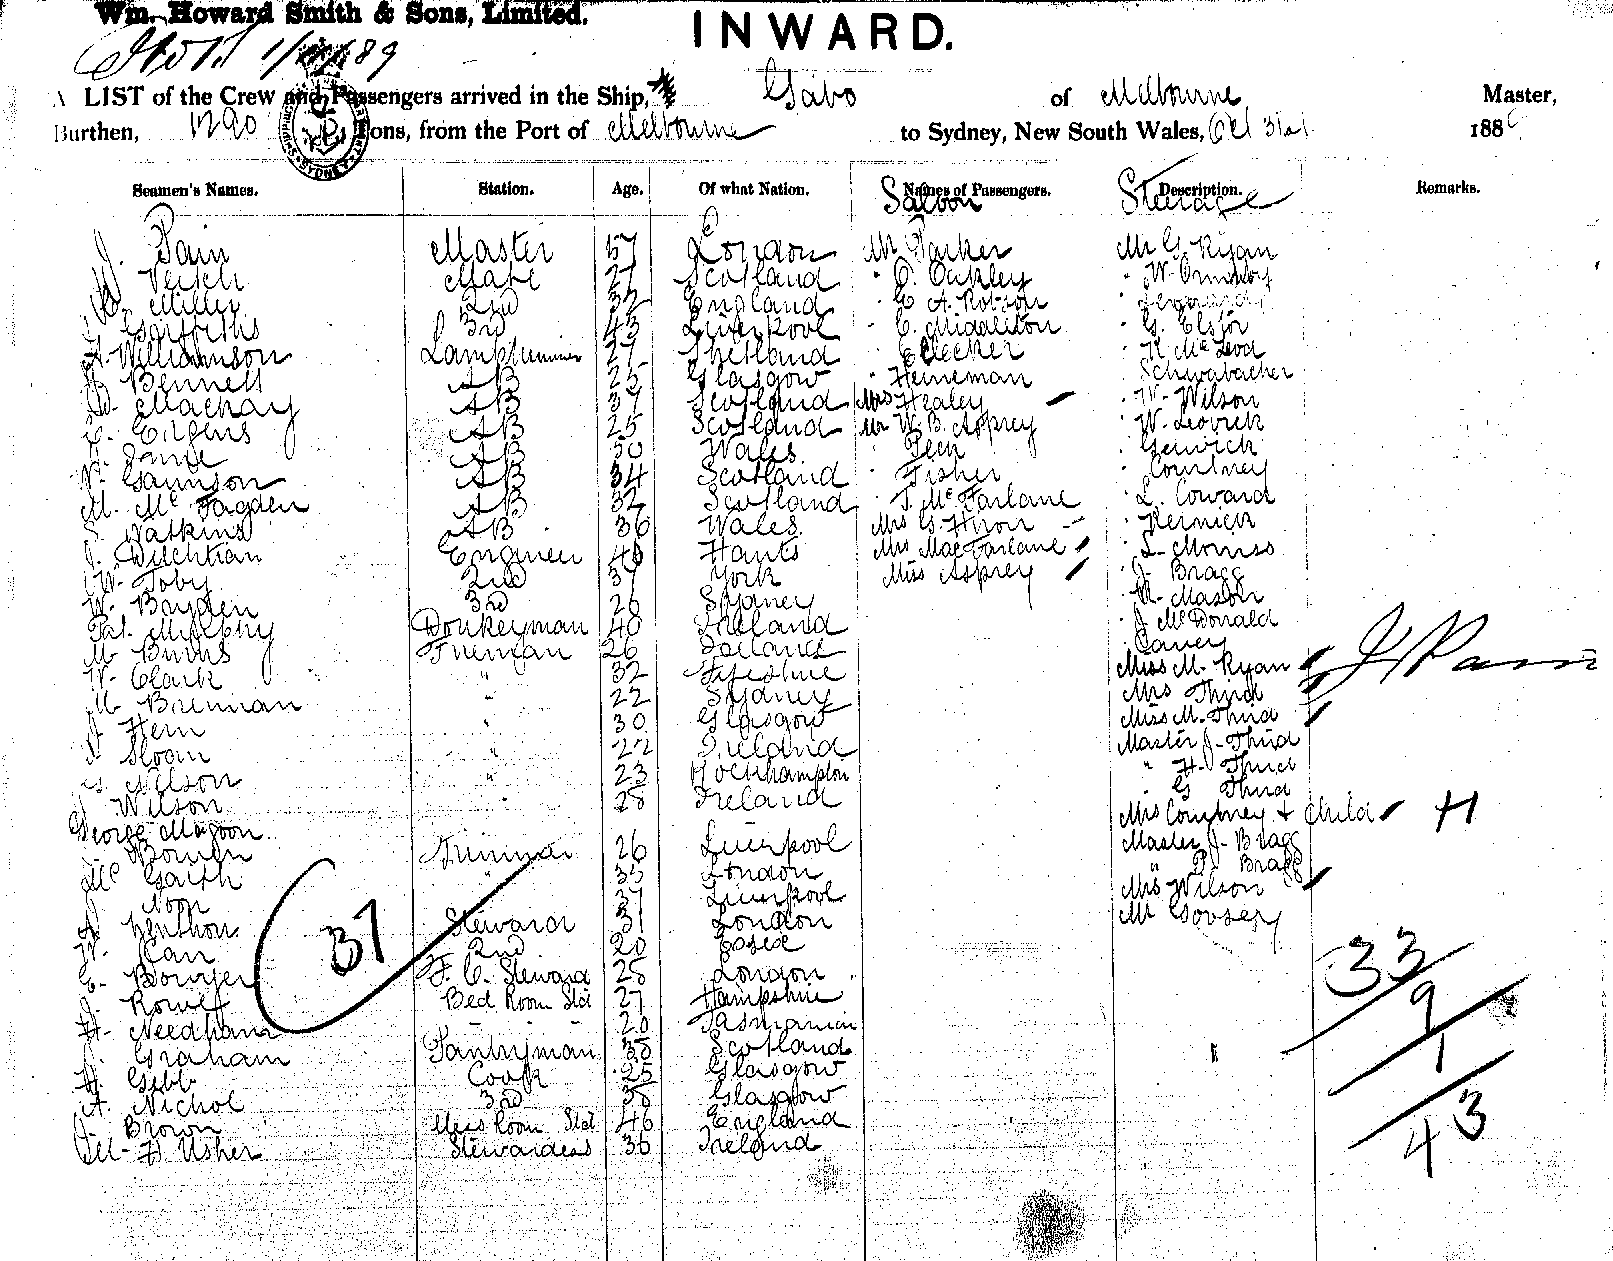 Wm. Howard Smith & Sons, Limited.
INWARD.
1/11/89
LIST of the Crew and Passengers arrived in the Ship, Gabo of Melbourne Master,
Burthen, 1290 Tons, from the Port of Melbourne to Sydney, New South Wales, Oct 31st 188
Seamen's Names. Station. Age. Of what Nation. Names of Passengers. Description. Remarks.
Saloon Steerage
J. Pain Master 57 London Mr Parker Mr G. Ryan
Veitch Mate 27 Scotland " C. Oakley " W. Ormsby
Miller 2nd 32 England " E. A. Robson
Garforths 3rd 43 Liverpool " C. Middleton " G. Elstor
A. Williamson Lamptrimmer 27 Shetland " " R. McLeod
Bennett AB 25 Glasgow " Heineman " Schwabacher
D. Mackay AB 37 Scotland Mrs Healey " W. Wilson
AB 25 Scotland Mr W. B. Asprey " W. Leovick
AB 50 Wales " Peck " Genwick
Gannson AB 34 Scotland " Fisher " Courtney
M. McFagden AB 32 Scotland " J. McFarlane " L. Coward
S. Watkins AB 36 Wales Mrs G. " Kernick
J. Engineer 40 Hants Mrs MacFarlane " L. Morriss
W. Toby 2nd 37 York Miss Asprey " J. Bragg
W. Boyden 3rd 26 Sydney " Mason
Pat. Murphy Donkeyman 40 Ireland " J. McDonald
M. Burns Fireman 26 Ireland
W. Clark " 32 Miss M. Ryan J. Pain
M. Brennan " 22 Sydney Mrs Third
J. Hern " 30 Glasgow Miss M. Third
Sloan " 22 Ireland Master J. Third
Nilson " 23 Rockhampton " H. Third
J. Wilson " 28 Ireland " G. Third
George Magoon Mrs Courtney & Child H
Bowen Trimmer 26 Liverpool Master J. Bragg
McGarth " 35 London " P. Bragg
Noon 37 Liverpool Mrs Wilson
Steward 31 London Mr
37
W. Carr 2nd 20 Essex
E. Bowyer F. C. Steward 28 London
33
J. Bed Room Std 27 Hampshire
9
H. Needham 20 Tasmania
J. Graham Pantryman 38 Scotland
1
H. Gibb Cook 25 Glasgow
A. Nichol 3rd 38 Glasgow
43
J. Brown Mess Room Std 46 England
M. F. Usher Stewardess 36 Ireland